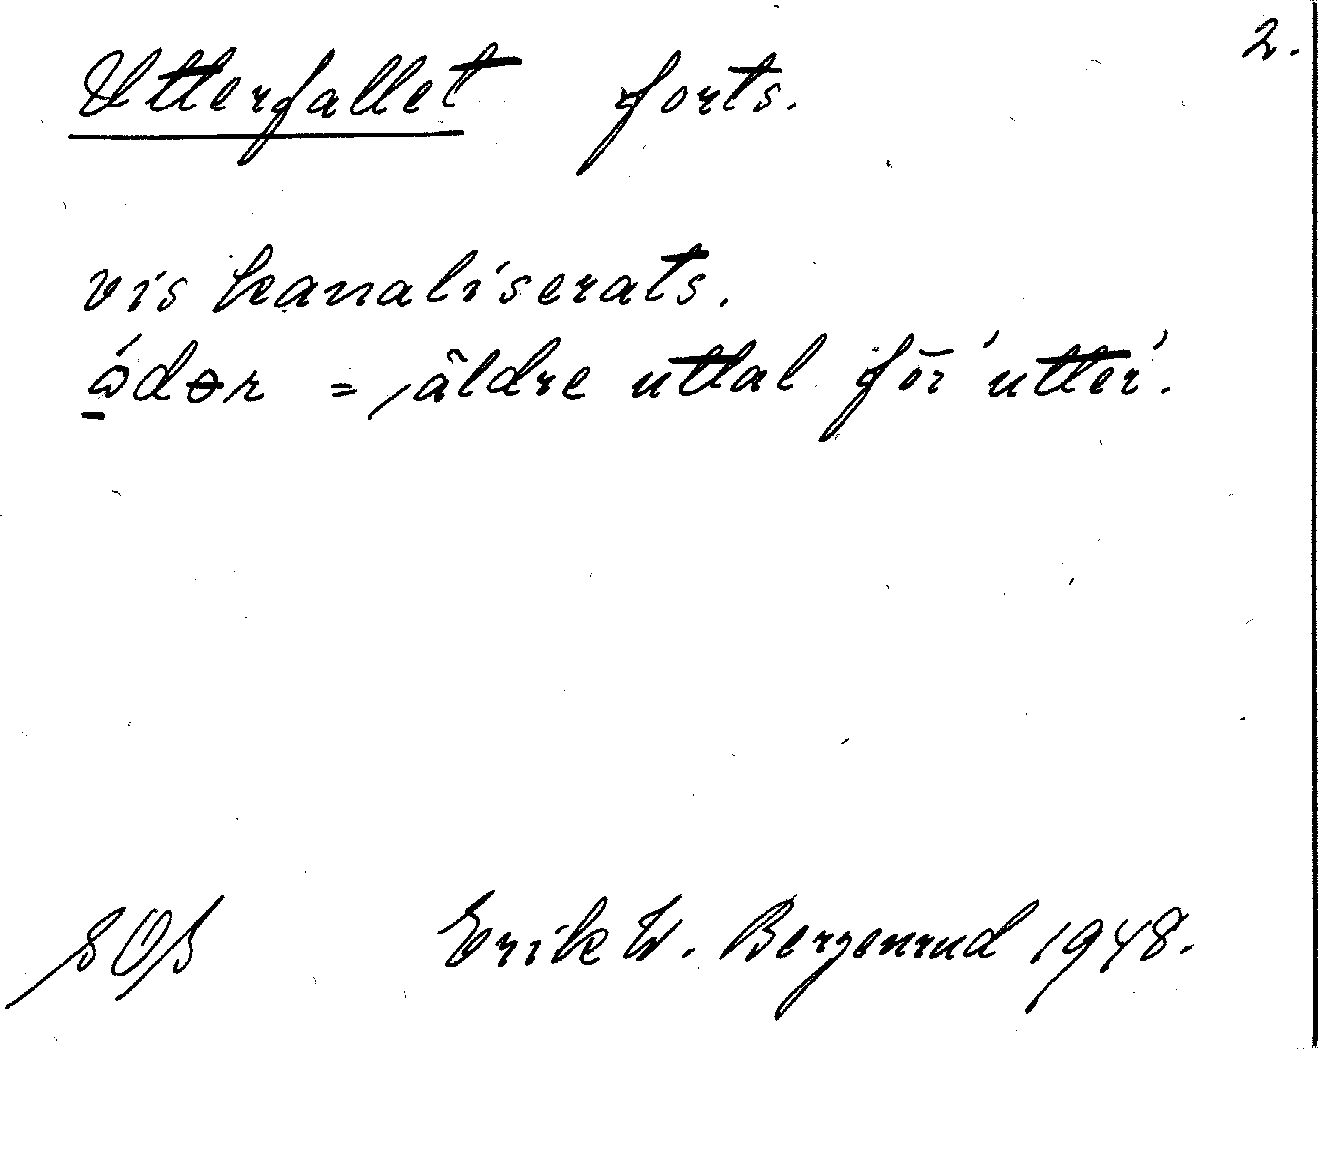 2.
Utterfallet forts.
vis kanaliserats.
ǻdər = äldre uttal för 'utter'.
SOB Erik W. Bergenrud 1948.